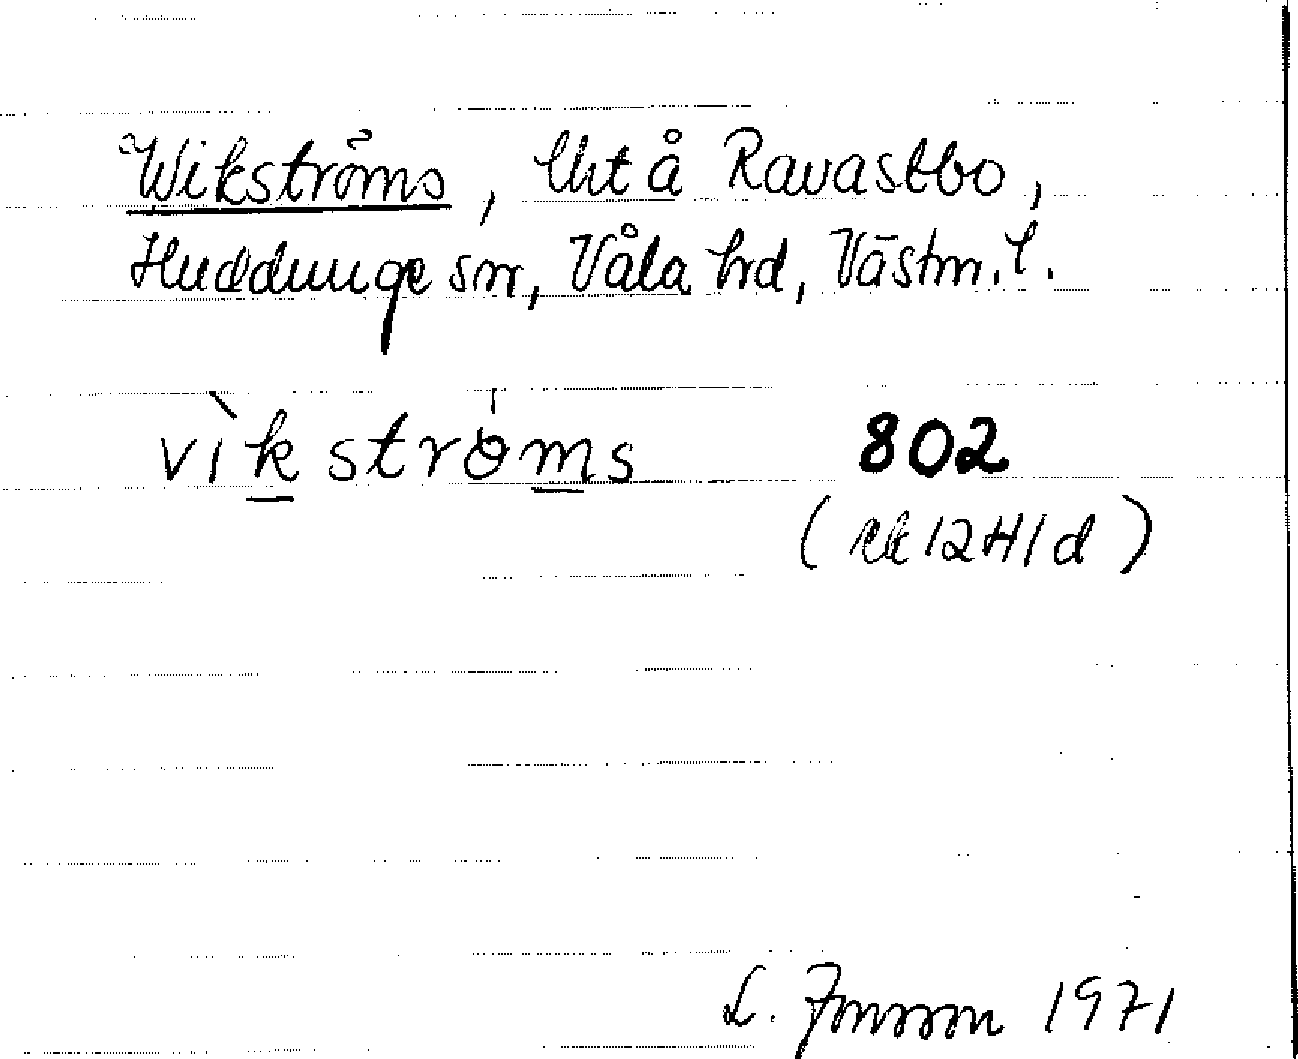 Wikströms, lht å Ravastbo,
Huddunge sn, Våla hd, Västm. l.
vìkströms 802
(ek 12H1d)
L. Jonsson 1971